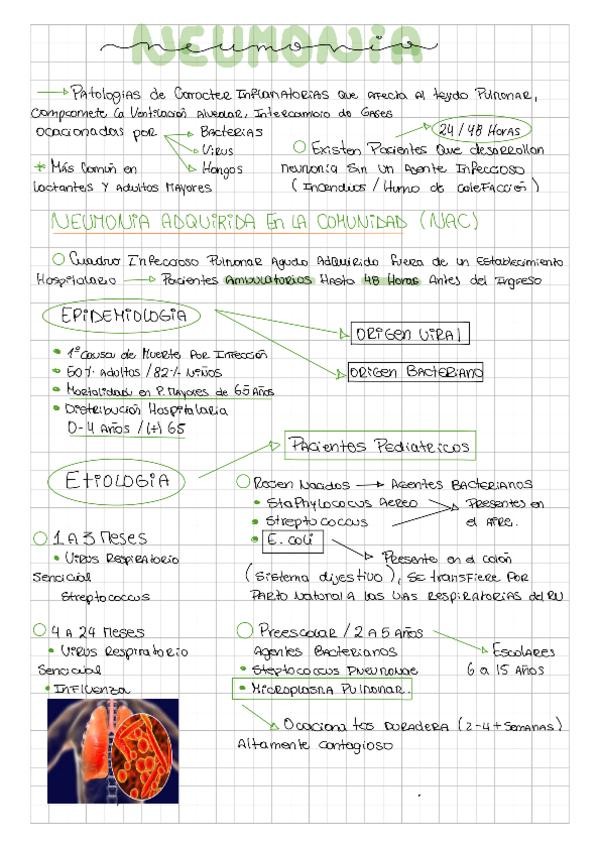 NEUMONIA
→ Patologias de Caracter Inflamatorias que afecta al tejido Pulmonar,
compromete la Ventilacion Alveolar, Intercambio de Gases
ocacionadas por → Bacterias
→ Virus
→ Hongos
* Más Común en
lactantes y Adultos Mayores
24/48 Horas
Existen Pacientes Que desarrollan
neumonia Sin un Agente Infeccioso
(Incendios / Humo de calefacción)
NEUMONIA ADQUIRIDA En LA COMUNIDAD (NAC)
Cuadro Infeccioso Pulmonar Agudo Adquirido fuera de un Establecimiento
Hospitalario → Pacientes Ambulatorios Hasta 48 Horas Antes del Ingreso
EPIDEMIOLOGIA
ORIGEN VIRAL
ORIGEN BACTERIANO
• 1° Causa de Muerte Por Infección
• 50% Adultos / 82% Niños
• Mortalidad en P. Mayores de 65 Años
• Distribución Hospitalaria
0-4 Años / (+) 65
Pacientes Pediatricos
ETIOLOGIA
Recien Nacidos → Agentes BACTERIANOS
• Staphylococus Aereo
• Streptococcus
Presentes en
el Aire.
• E. coli
Presente en el colón
(Sistema digestivo), se transfiere por
Parto Natural a las vias respiratorias del RN
1 A 3 Meses
• Virus Respiratorio
Sencicial
Streptococcus
4 A 24 Meses
• Virus Respiratorio
Sencicial
• Influenza
Preescolar / 2 A 5 Años
Agentes Bacterianos
• Steptococcus Pneumonae
• Microplasma Pulmonar.
Escolares
6 a 15 Años
Ocaciona tos duradera (2-4+ Semanas)
Altamente contagioso